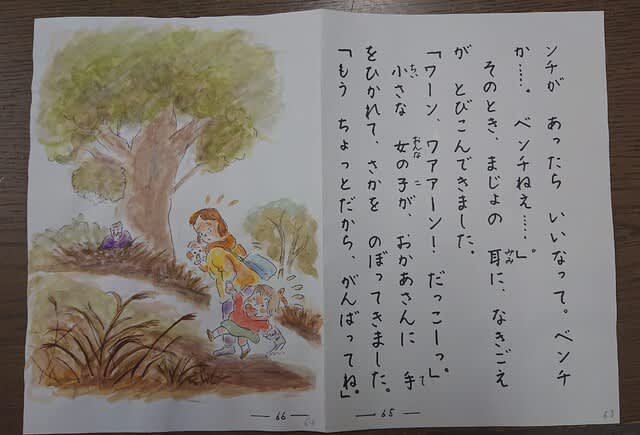 ンチが あったら いいなって。ベンチ
か……。 ベンチねえ……」。
そのとき、まじょの 耳に、なきごえ
が とびこんできました。
「ワーン、ワアアーン！ だっこーっ」。
小さな 女の子が、おかあさんに 手
をひかれて、さかを のぼってきました。
「もう ちょっとだから、がんばってね。
みみ
ちい
おんな
こ
て
— 66 —
— 65 —
63